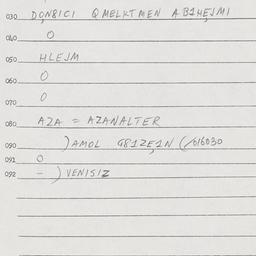 030 DON8ICI QMELKTMEN AB1HEJMI
040 O
050 HLEJM
060 O
070 O
080 AZA = AZANALTER
090 )AMOL G81ZE1N (/616030
091 O
092 - ) VENISIZ